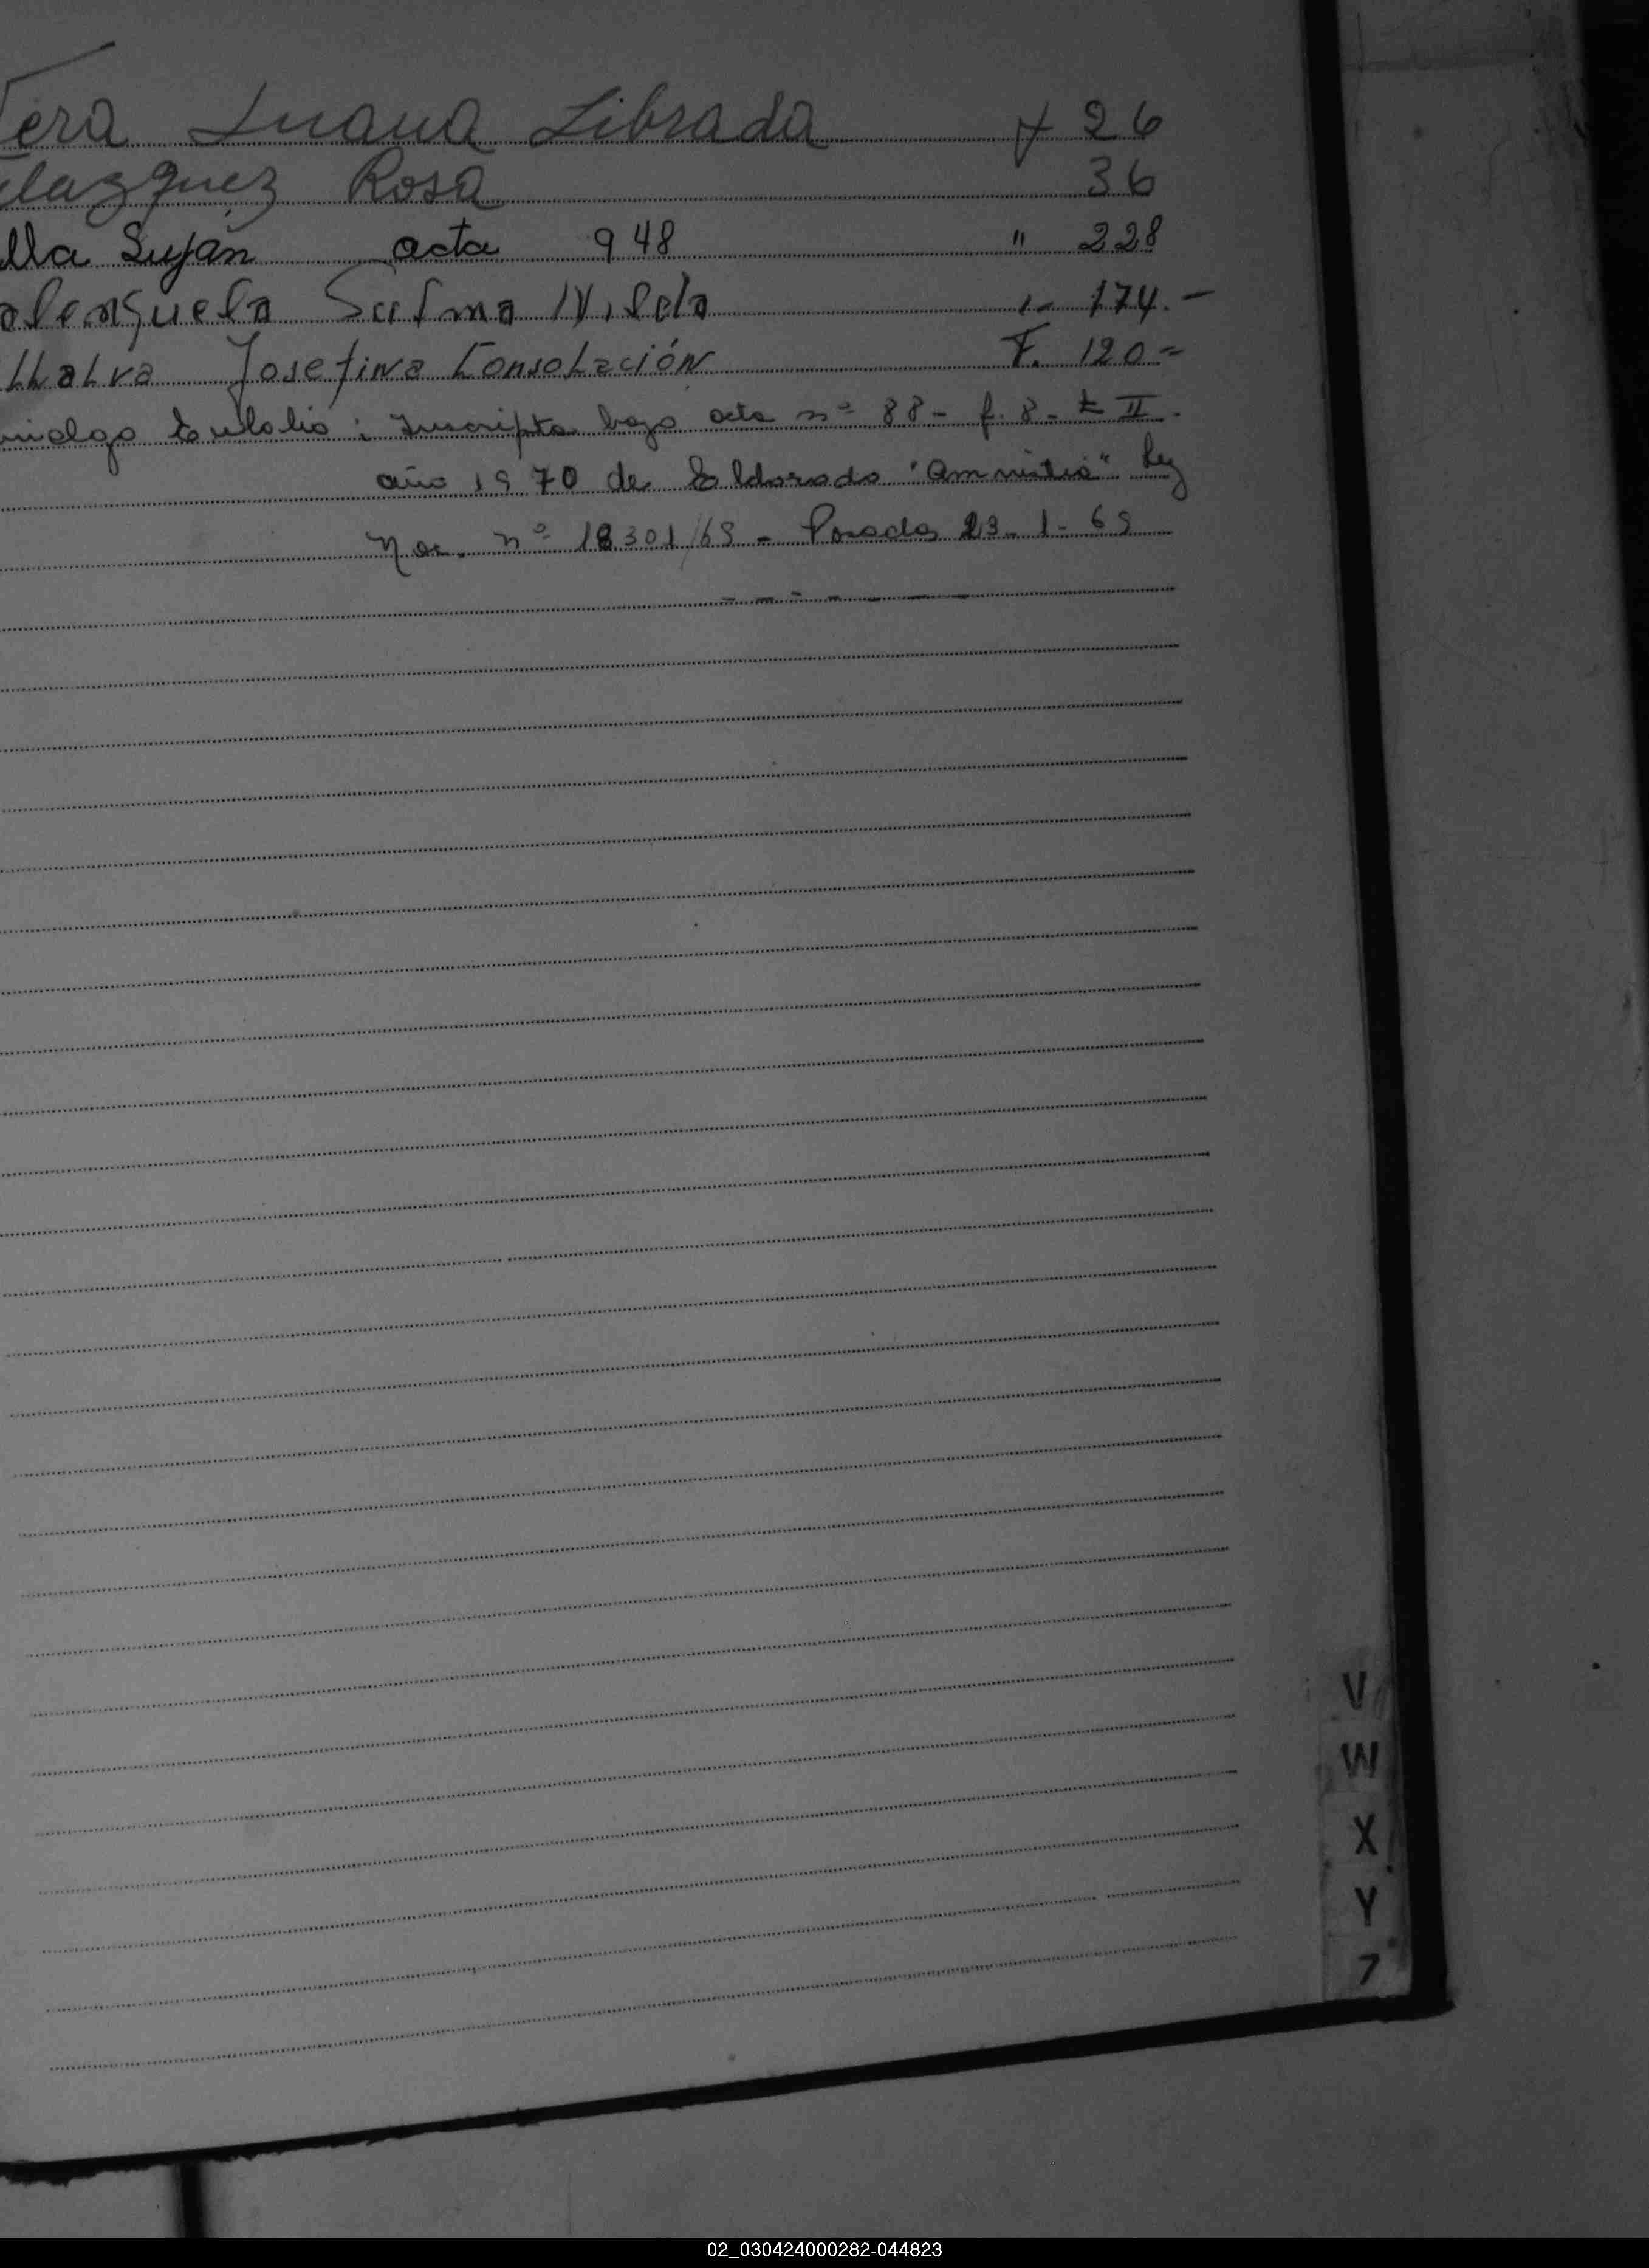 Vera Juana Librada f 26
elazquez Rosa 36
lla Luján acta 948 " 228
alenzuela Sulma Nilda 174.-
llalva Josefina Consolación F. 120=
Eulalio : Inscripta bajo acta nº 88 - f. 8 - t II -
año 1970 de Eldorado "Amnistia" Ley
Nac. nº 18301/69 - Posadas 23-1-69
V
W
X
Y
Z
02_030424000282-044823